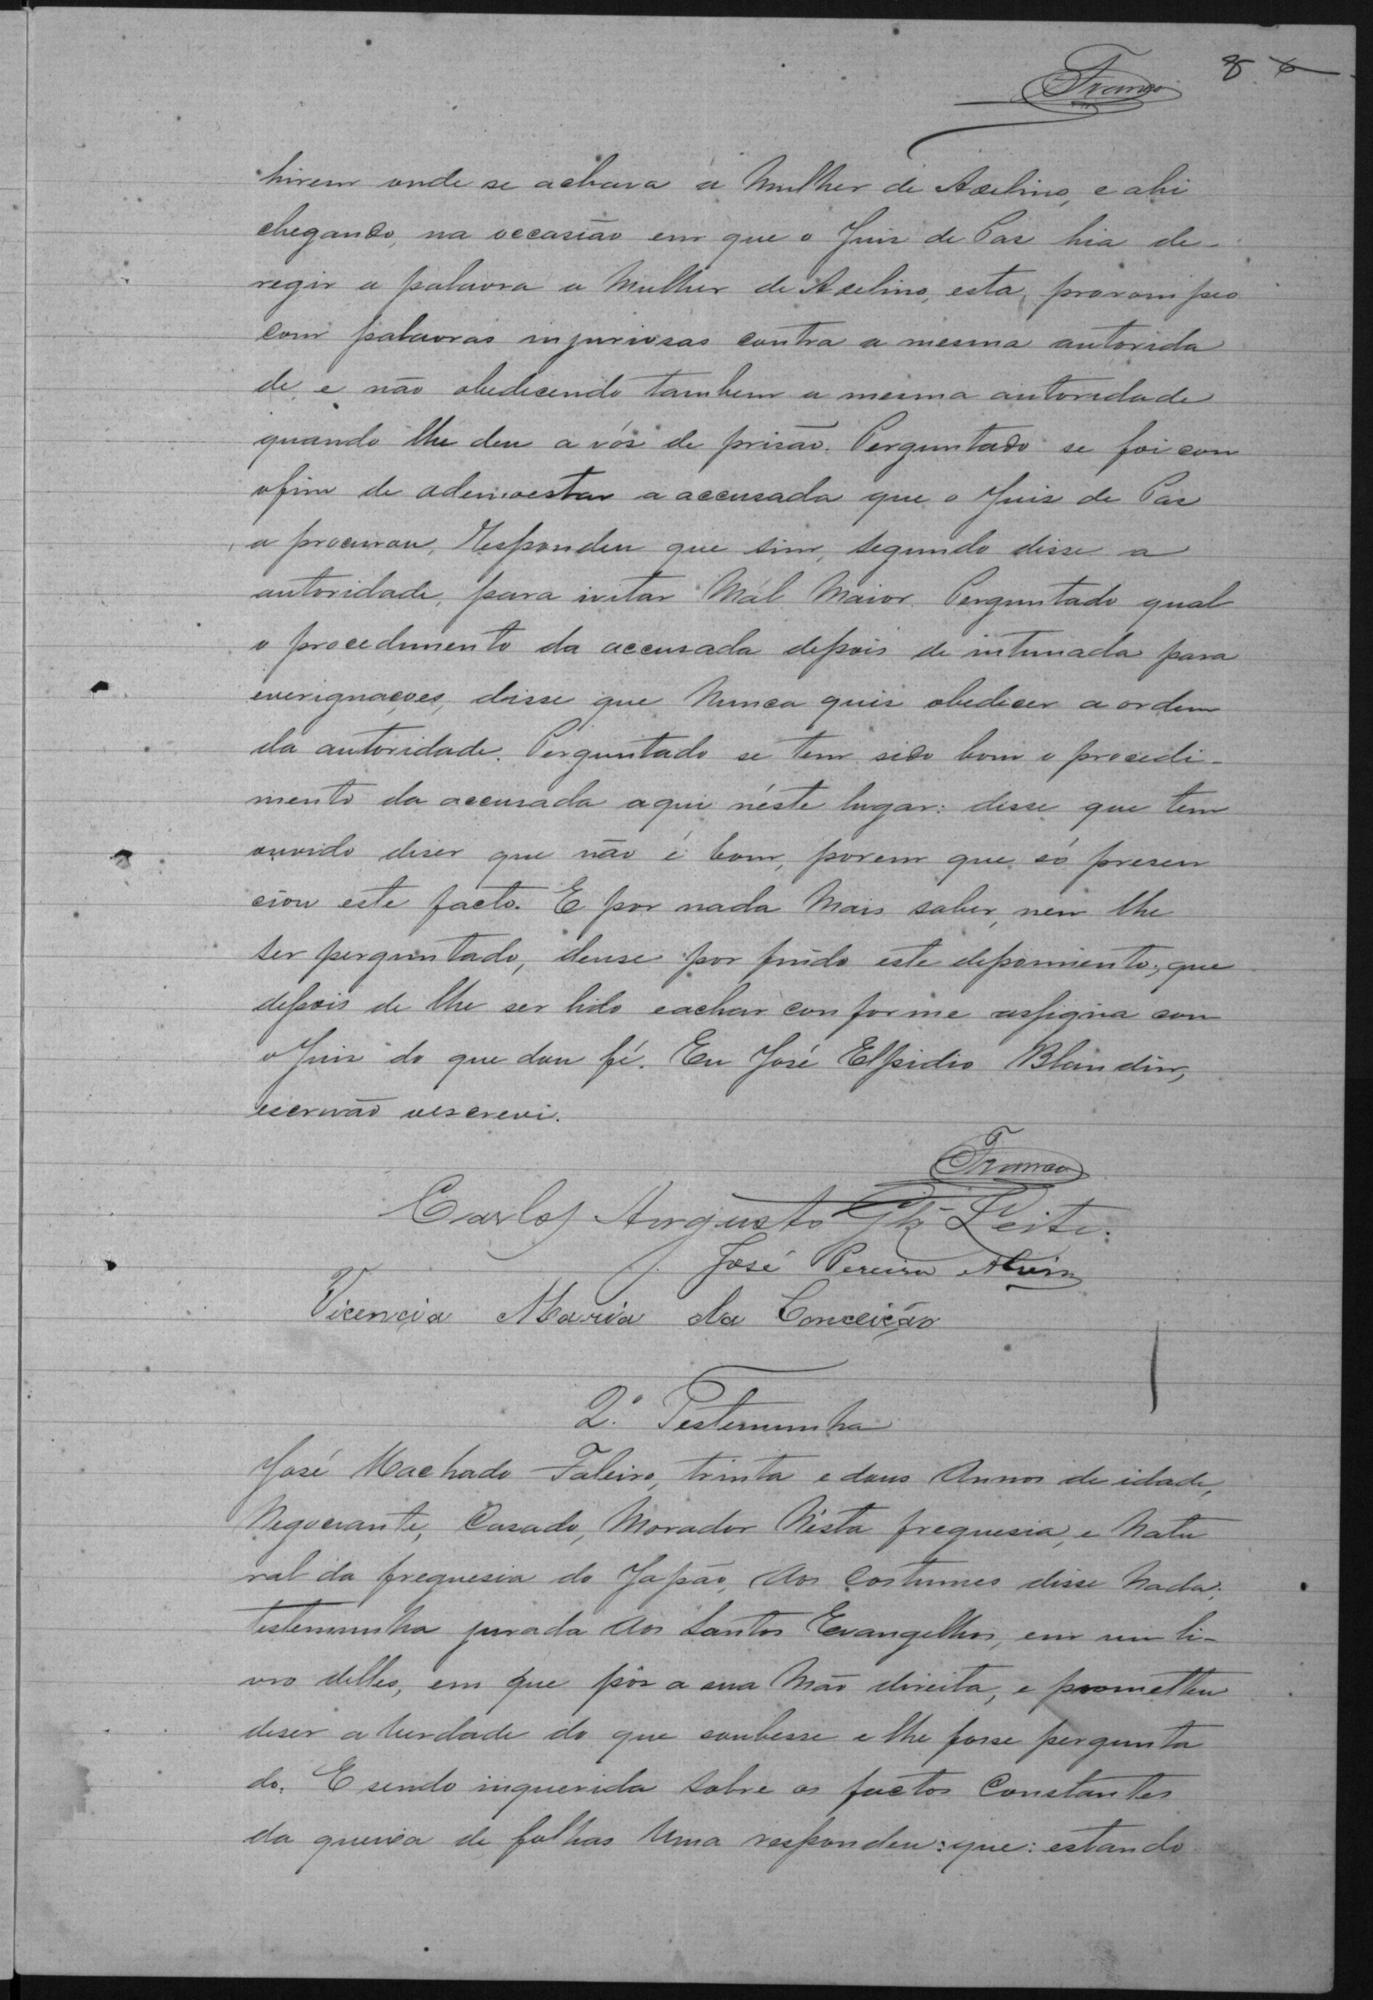 8
Franco
hirem onde se achava a Mulher de Aselino, e ahi
chegando, na occasião em que o Juis de Pas hia de-
regir a palavra a Mulher de Aselino, esta, prorompeo
com palavras injuriosas contra a mesma autorida
de, e não obedicendo tambem a mesma autoridade
quando lhe deu a vós de prisão. Perguntado se foi com
ofim de ademoestar a accusada que o Juis de Pas
a procurou, Respondeu que sim, segundo disse a
autoridade, para ivitar Mál Maior. Perguntado qual
o procedimento da accusada depois de intimada para
everignações, disse que Nunca quis obedicer a ordem
da autoridade. Perguntado se tem sido bom o procedi-
mento da accusada aqui néste lugar: disse que tem
ouvido diser que não é bom, porem que só presen
ciou este facto. E por nada Mais saber, nem lhe
ser perguntado, deuse por findo este depoimento, que
depois de lhe ser lido eachar conforme assigna com
o Juis do que dou fé. Eu José Elpidio Blandin,
escrivão oescrevi.
Franco
Carlos Augusto Glz Leite.
José Pereira Alvim
Vicencia Maria da Conceição
2.ª Testemunha
José Machado Faleiro, trinta e dous Annos de idade,
Negociante, Casado, Morador Nésta freguesia, e Natu
ral da freguesia do Japão, Aos Costumes disse Nada,
testemunha jurada Aos Santos Evangelhos, em um li-
vro delles, em que pôs a sua Mão direita, e prometteu
diser a Verdade do que soubesse e lhe fosse pergunta
do. E sendo inquerida Sobre os factos Constantes
da queixa de folhas Uma respondeu: que: estando